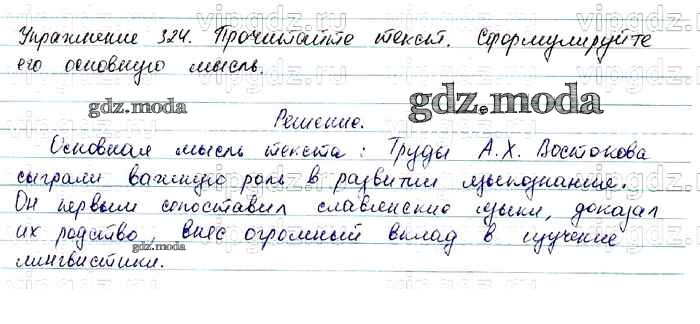 Упражнение 324. Прочитайте текст. Сформулируйте
его основную мысль.
gdz.moda
gdz.moda
Решение.
Основная мысль текста: Труды А.Х. Востокова
сыграли важную роль в развитии языкознание.
Он первым сопоставил славянские языки, доказал
их родство, внёс огромный вклад в изучение
лингвистики.
gdz.moda